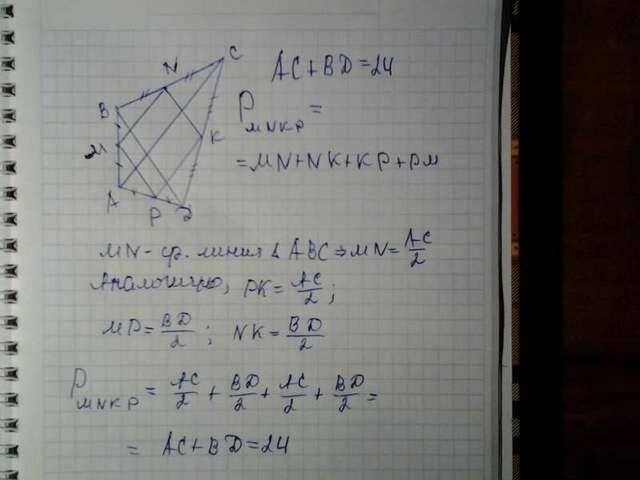 C
N
B
M
K
A
P
D
AC+BD=24
P_MNKP =
=MN+NK+KP+PM
MN-ср. линия △ ABC ⇒ MN=AC/2
Аналогично, PK=AC/2;
MP=BD/2; NK=BD/2
P_MNKP = AC/2 + BD/2 + AC/2 + BD/2 =
= AC+BD=24